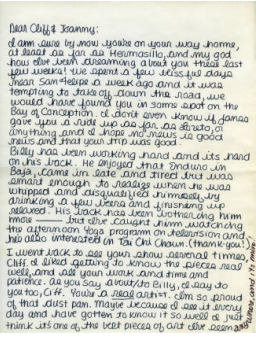 Dear Cliff & Joanny:
I am sure by now you're on your way home,
at least as far as Hermosillo, and my god
how I've been dreaming about you these last
few weeks! We spent a few blissful days
near San Felipe a week ago and it was
tempting to take off down the road, we
would have found you in some spot on the
Bay of Conception. I don't even know if James
gave you a ride up as far as Loreto, or
anything and I hope no news is good
news and that your trip was good.
Billy has been working hard and its hard
on his back. He enjoyed that Enduro in
Baja, came in late and tired but was
smart enough to realize when he was
whipped and disqualified himself by
drinking a few beers and finishing up
relaxed. His back has been bothering him
more — but I've caught him watching
the afternoon Yoga program on television and
he's also interested in Tai Chi Chuan. (thank you!)
I went back to see your show several times,
Cliff. I liked getting to know the pieces real
well, and all your work and time and
patience. as you say about/to Billy, I say to
you too, Cliff. You're a real artist. I'm so proud
of that dust pan. Maybe because I see it every
day and have gotten to know it so well I just
think its one of the best pieces of art I've seen
anywhere, and its mine